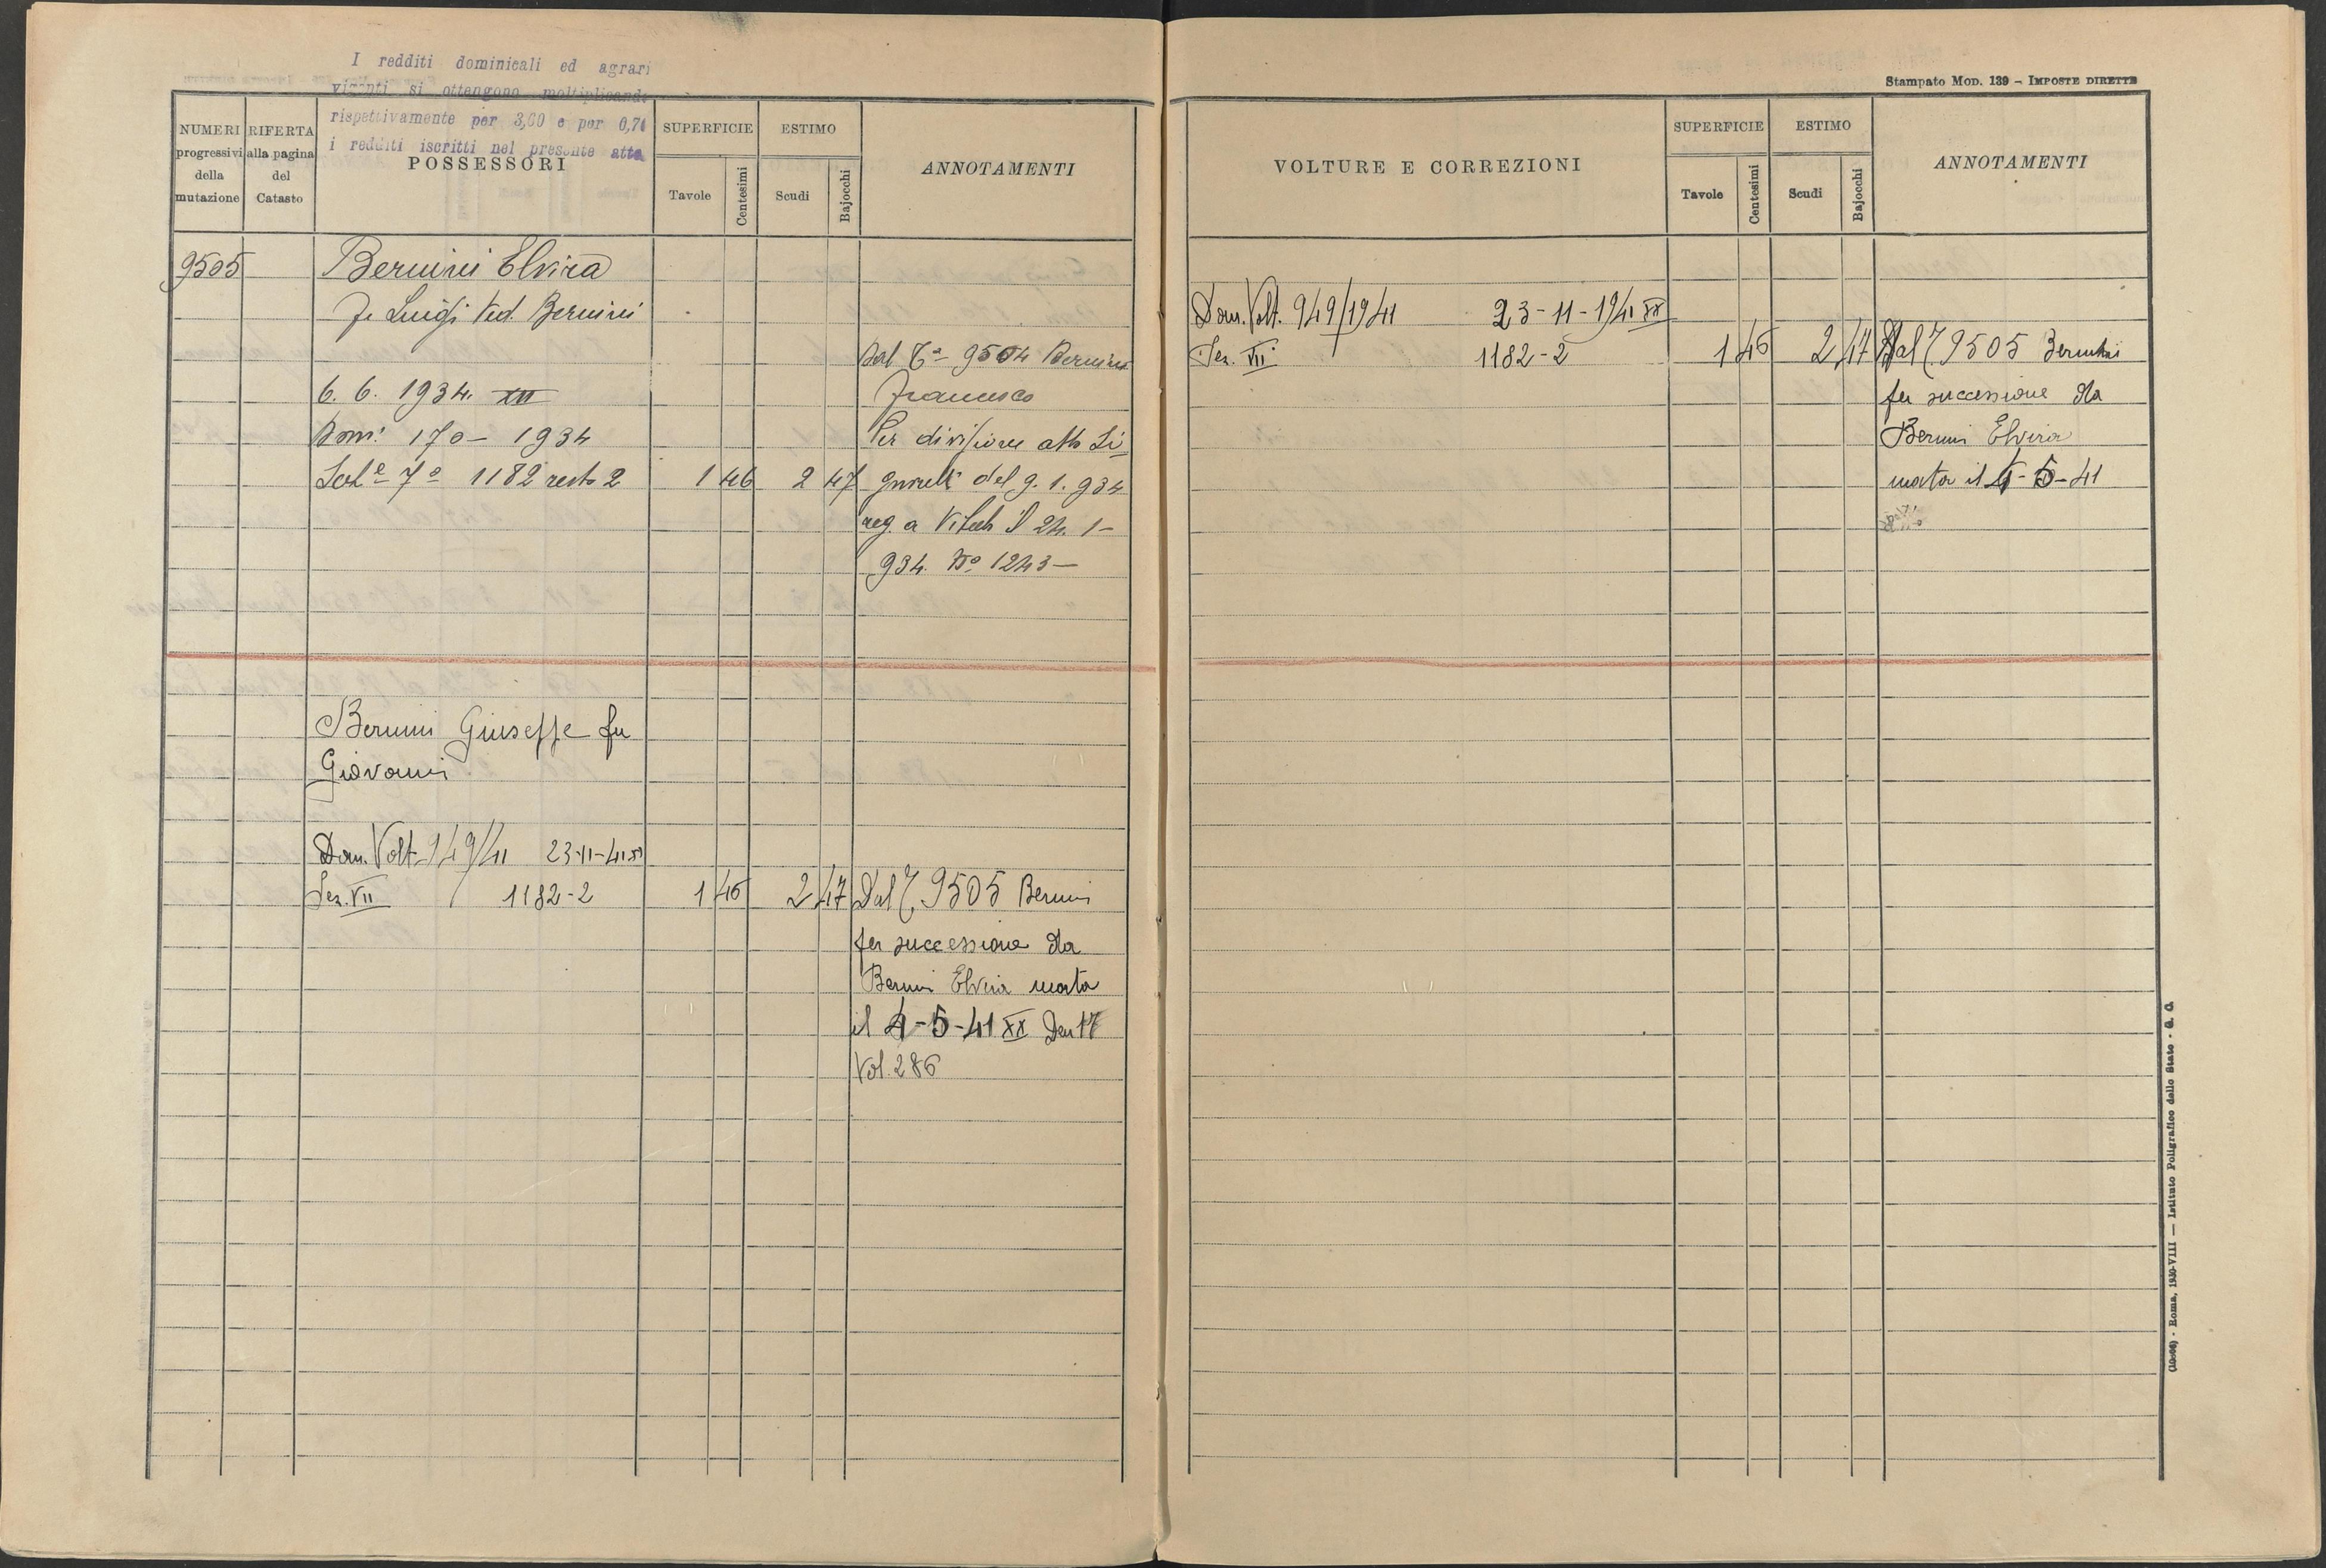 I redditi dominicali ed agrari
vigenti si ottengono moltiplicando
rispettivamente per 3,60 e per 0,70
i redditi iscritti nel presente atto
NUMERI progressivi della mutazione
RIFERTA alla pagina del Catasto
POSSESSORI
SUPERFICIE
Tavole Centesimi
ESTIMO
Scudi Bajocchi
ANNOTAMENTI
9505 Bernini Elvira
fu Luigi Ved. Bernini
Dal 9504 Bernini
6. 6. 1934. XII Francesco
Dom. 170 - 1934 Per divisione atto
Sez. 7a 1182 resto 2 1 46 2 47 del 9. 1. 934
reg. a il 24. 1 -
934. No 1243 -
Bernini Giuseppe fu
Giovanni
Dom. Volt. 949/41 23-11-41 XX
Sez. VII 1182-2 1 46 2 47 Dal 9505 Bernini
per successione da
Bernini Elvira morta
il 4-5-41 XX Den 17
Vol. 286
Stampato Mod. 139 - Imposte dirette
VOLTURE E CORREZIONI
SUPERFICIE
Tavole Centesimi
ESTIMO
Scudi Bajocchi
ANNOTAMENTI
Dom. Volt. 949/1941 23-11-1941 XX
Sez. VII 1182-2 1 46 2 47 Dal 9505 Bernini
per successione da
Bernini Elvira
morta il 4-5-41
Roma, 1930-VIII — Istituto Poligrafico dello Stato - G. C.